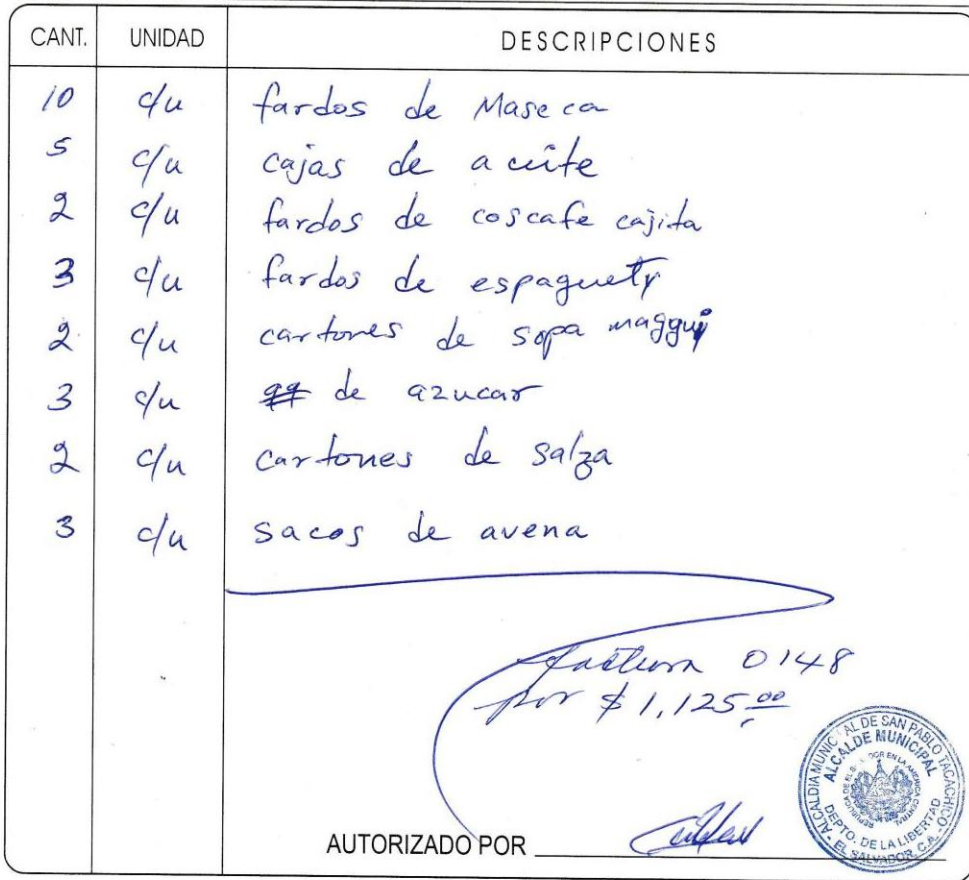 CANT. UNIDAD DESCRIPCIONES
10 c/u fardos de Maseca
5 c/u cajas de aceite
2 c/u fardos de coscafe cajita
3 c/u fardos de espaguety
2 c/u cartones de sopa maggui
3 c/u qq de azucar
2 c/u cartones de salza
3 c/u sacos de avena
factura 0148
por $ 1,125.00
ALCALDIA MUNICIPAL DE SAN PABLO TACACHICO
ALCALDE MUNICIPAL
DEPTO. DE LA LIBERTAD
EL SALVADOR, C.A.
AUTORIZADO POR